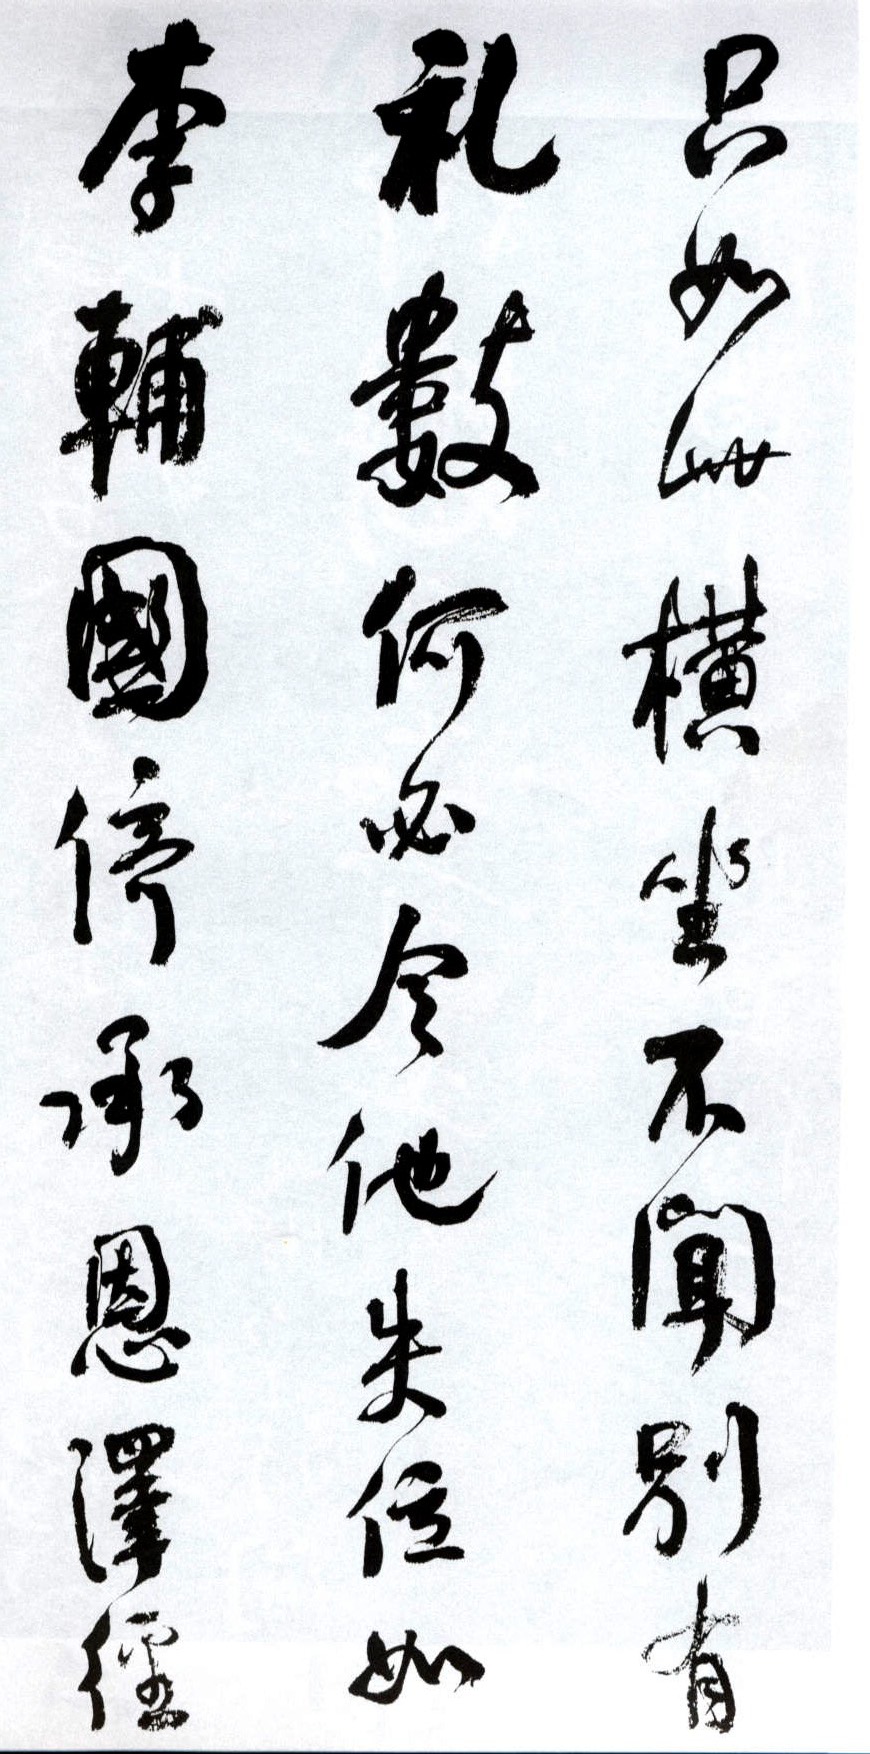 只如此橫坐不聞別有
礼數何必令他失位如
李輔國倚承恩澤徑